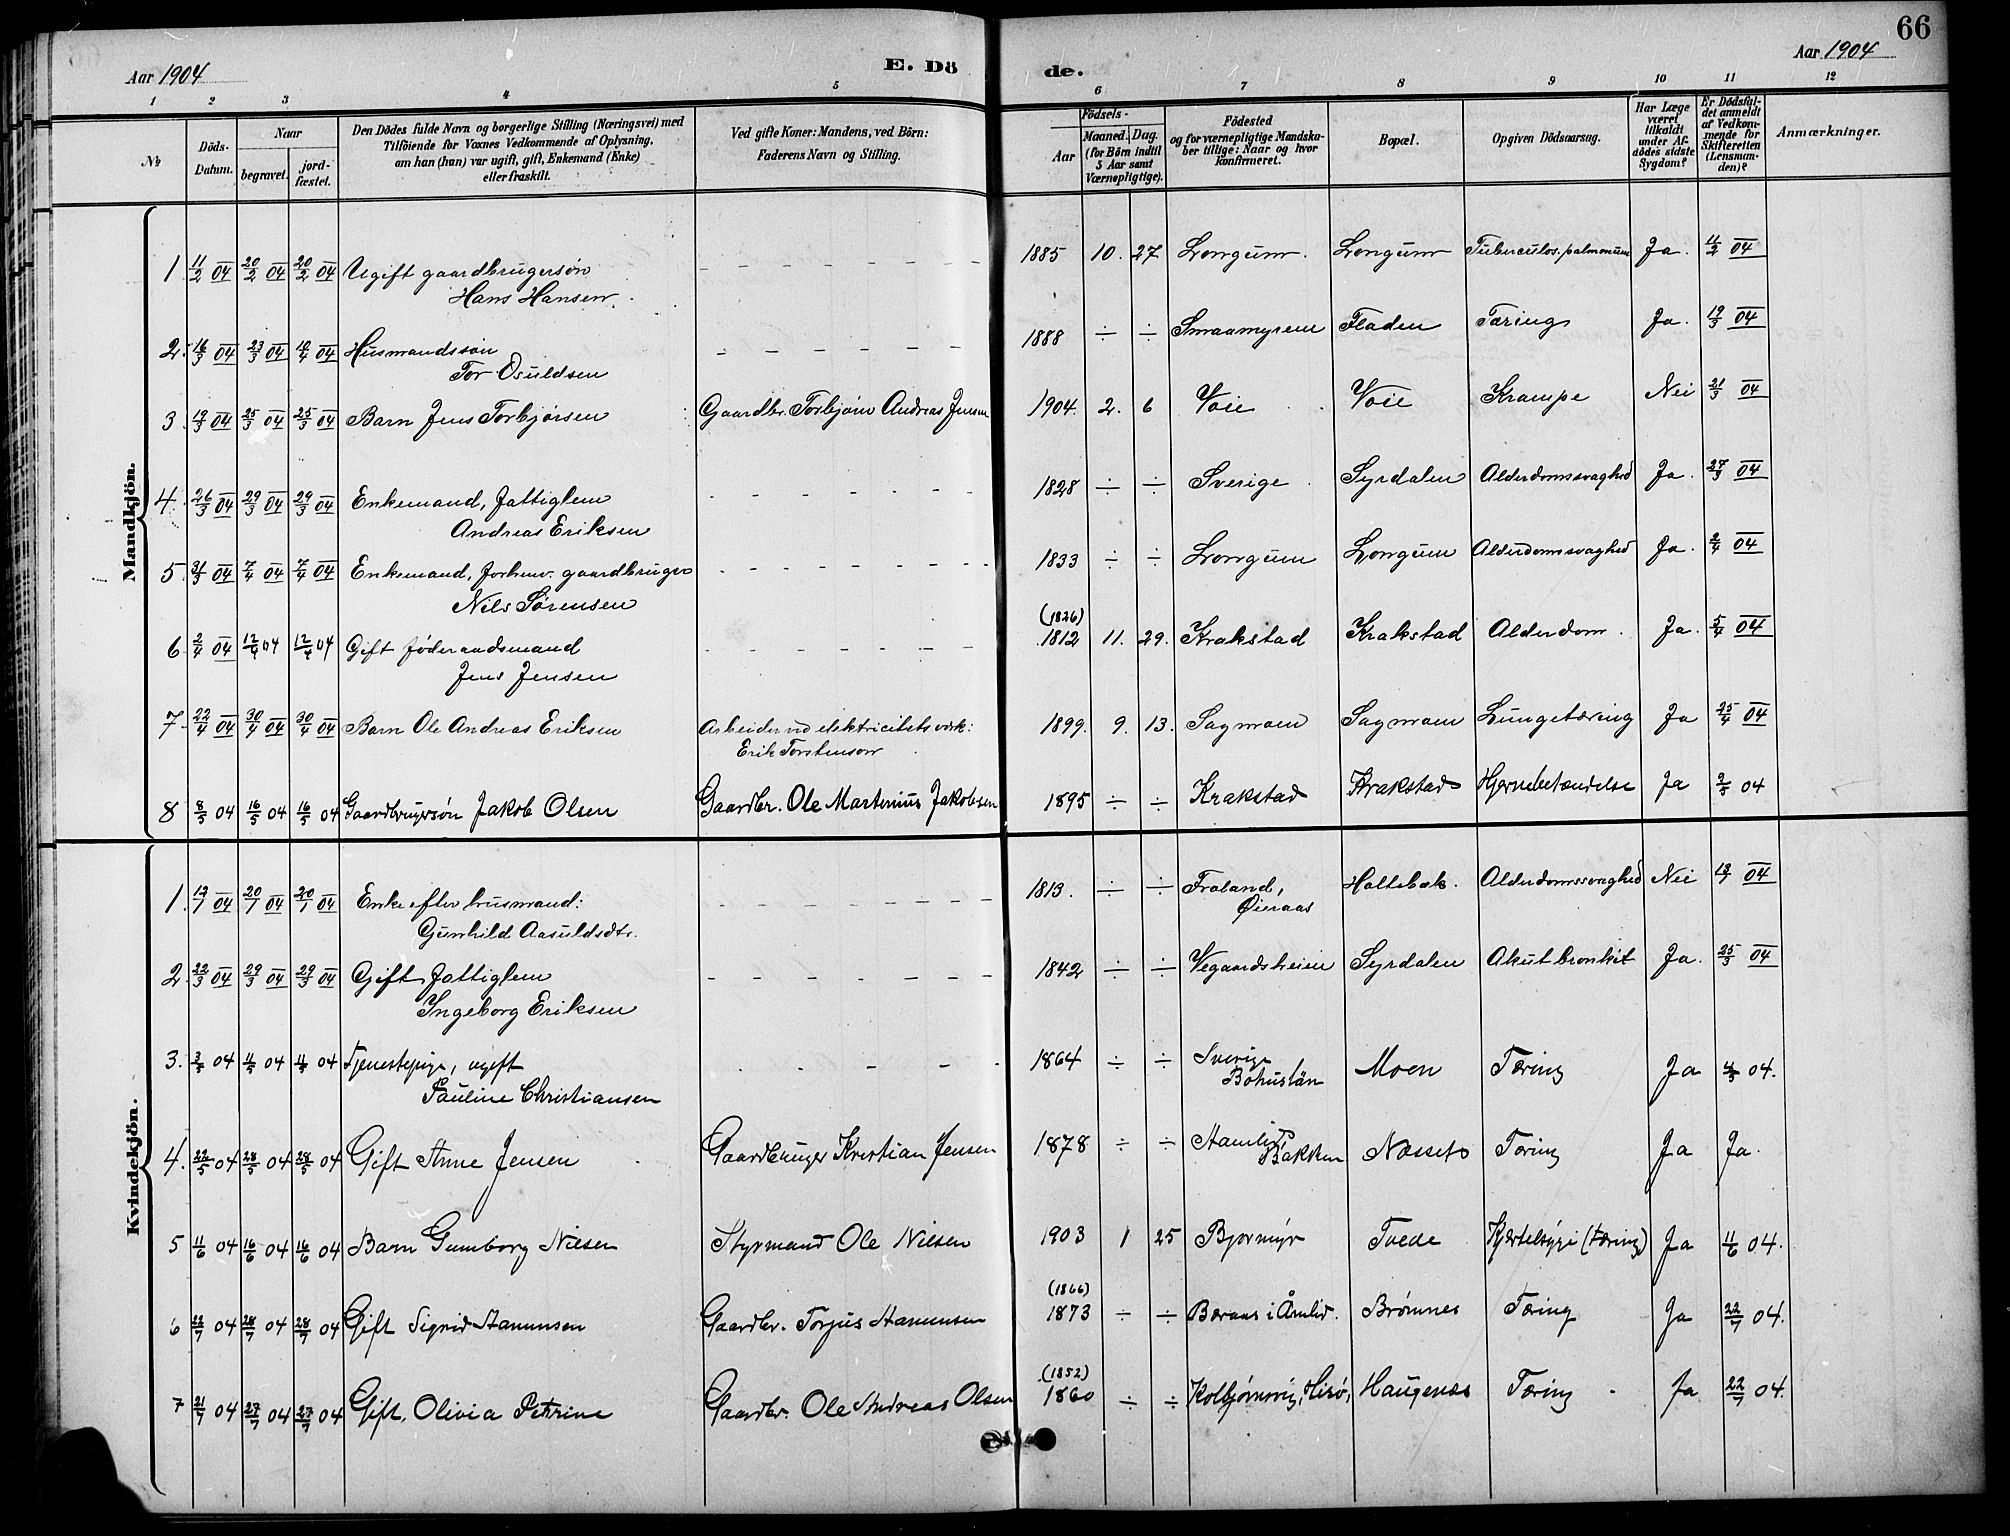 66
Aar 1904
E. Dö
de.
Aar 1904
1 2 3 4 5 6 7 8 9 10 11 12
No
Döds-Datum.
Naar
begravet.
jord-fæstet.
Den Dödes fulde Navn og borgerlige Stilling (Næringsvei) med
Tilföiende for Voxnes Vedkommende af Oplysning,
om han (hun) var ugift, gift, Enkemand (Enke)
eller fraskilt.
Ved gifte Koner: Mandens, ved Börn:
Faderens Navn og Stilling.
Födsels-
Aar
Maaned. Dag.
(for Börn indtil
5 Aar samt
Værnepligtige).
Födested
og for værnepligtige Mandska-
ber tillige: Naar og hvor
konfirmeret.
Bopæl.
Opgiven Dödsaarsag.
Har Læge
været
tilkaldt
under Af-
dödes sidste
Sygdom?
Er Dödsfal-
det anmeldt
af Vedkom-
mende for
Skifteretten
(Lensman-
den)?
Anmærkninger.
Mandkjön.
1 11/2 04 20/2 04 20/2 04 Ugift gaardbrugersøn
Hans Hansen.
1885 10. 27 Longum. Longum Tuberculos. palmonum Ja. 11/2 04
2. 16/3 04 23/3 04 10/4 04 Husmandssøn
Tor Osuldsen
1888 ÷ ÷ Smaamyrene Fladen Tæring Ja. 19/3 04
3. 19/3 04 25/3 04 25/3 04 Barn Jens Torbjørsen Gaardbr. Torbjørn Andreas Jensen
1904. 2. 6 Voie Voie Krampe Nei 21/3 04
4. 26/3 04 29/3 04 29/3 04 Enkemand, Fattiglem
Andreas Eriksen
1828 ÷ ÷ Sverige Syrdalen Alderdomssvaghed Ja. 27/3 04
5. 31/3 04 7/4 04 7/4 04 Enkemand, forhenv. gaardbruger
Nils Sørensen
1833 ÷ ÷ Longum Longum Alderdomssvaghed Ja. 2/4 04
6 2/4 04 12/4 04 12/4 04 Gift føderaadsmand
Jens Jensen
(1826)
1812 11. 29. Krakstad Krakstad Alderdom. Ja. 5/4 04
7. 22/4 04 30/4 04 30/4 04 Barn Ole Andreas Eriksen Arbeider ved elektricitetsverk:
Erik Torstenson
1899. 9. 13. Sagmoen Sagmoen Lungetæring Ja 25/4 04
8 8/5 04 16/5 04 16/5 04 Gaardbrugersøn Jakob Olsen Gaardbr. Ole Martinius Jakobsen
1895 ÷ ÷ Krakstad Krakstad Hjernebetændelse Ja 9/5 04
Kvindekjön.
1. 04 20/1 04 20/1 04 Enke efter husmand:
Gunhild Aasuldsdtr.
1813. ÷ ÷ Froland,
Øieraas
Holtebæk. Alderdomssvaghed Nei 04
2. 22/3 04 29/3 04 29/3 04 Gift Fattiglem
Ingeborg Eriksen
1842 ÷ ÷ Vegaardsheien Syrdalen Akut bronkit Ja. 25/3 04
3. 3/5 04 11/5 04 11/5 04 Tjenestepige, ugift
Pauline Christiansen
1864 ÷ ÷ Sverige
Bohuslän
Moen Tæring Ja 4/5 04.
4. 22/5 04 28/5 04 28/5 04 Gift Anne Jensen Gaardbruger Kristian Jensen
1878 ÷ ÷ Bakken Næsset Tæring Ja Ja.
5 11/6 04 16/6 04 16/6 04 Barn Gunborg Nilsen Styrmand Ole Nilsen
1903 1 25 Bjormyr Tvede Kjertelsyge (tæring) Ja 11/6 04.
6 22/7 04 28/7 04 28/7 04 Gift Sigrid Aanunsen Gaardbr. Torjus Aanunsen
(1866)
1873 ÷ ÷ Beraas i Åmlid. Brømnes Tæring Ja 22/7 04.
7 21/7 04 27/7 04 27/7 04 Gift, Olivia Petrine Gaardbr. Ole Andreas Olsen
(1852)
1860 ÷ ÷ Kolbjørnsvig, Hisø, Haugenæs Tæring Ja 22/7 04.